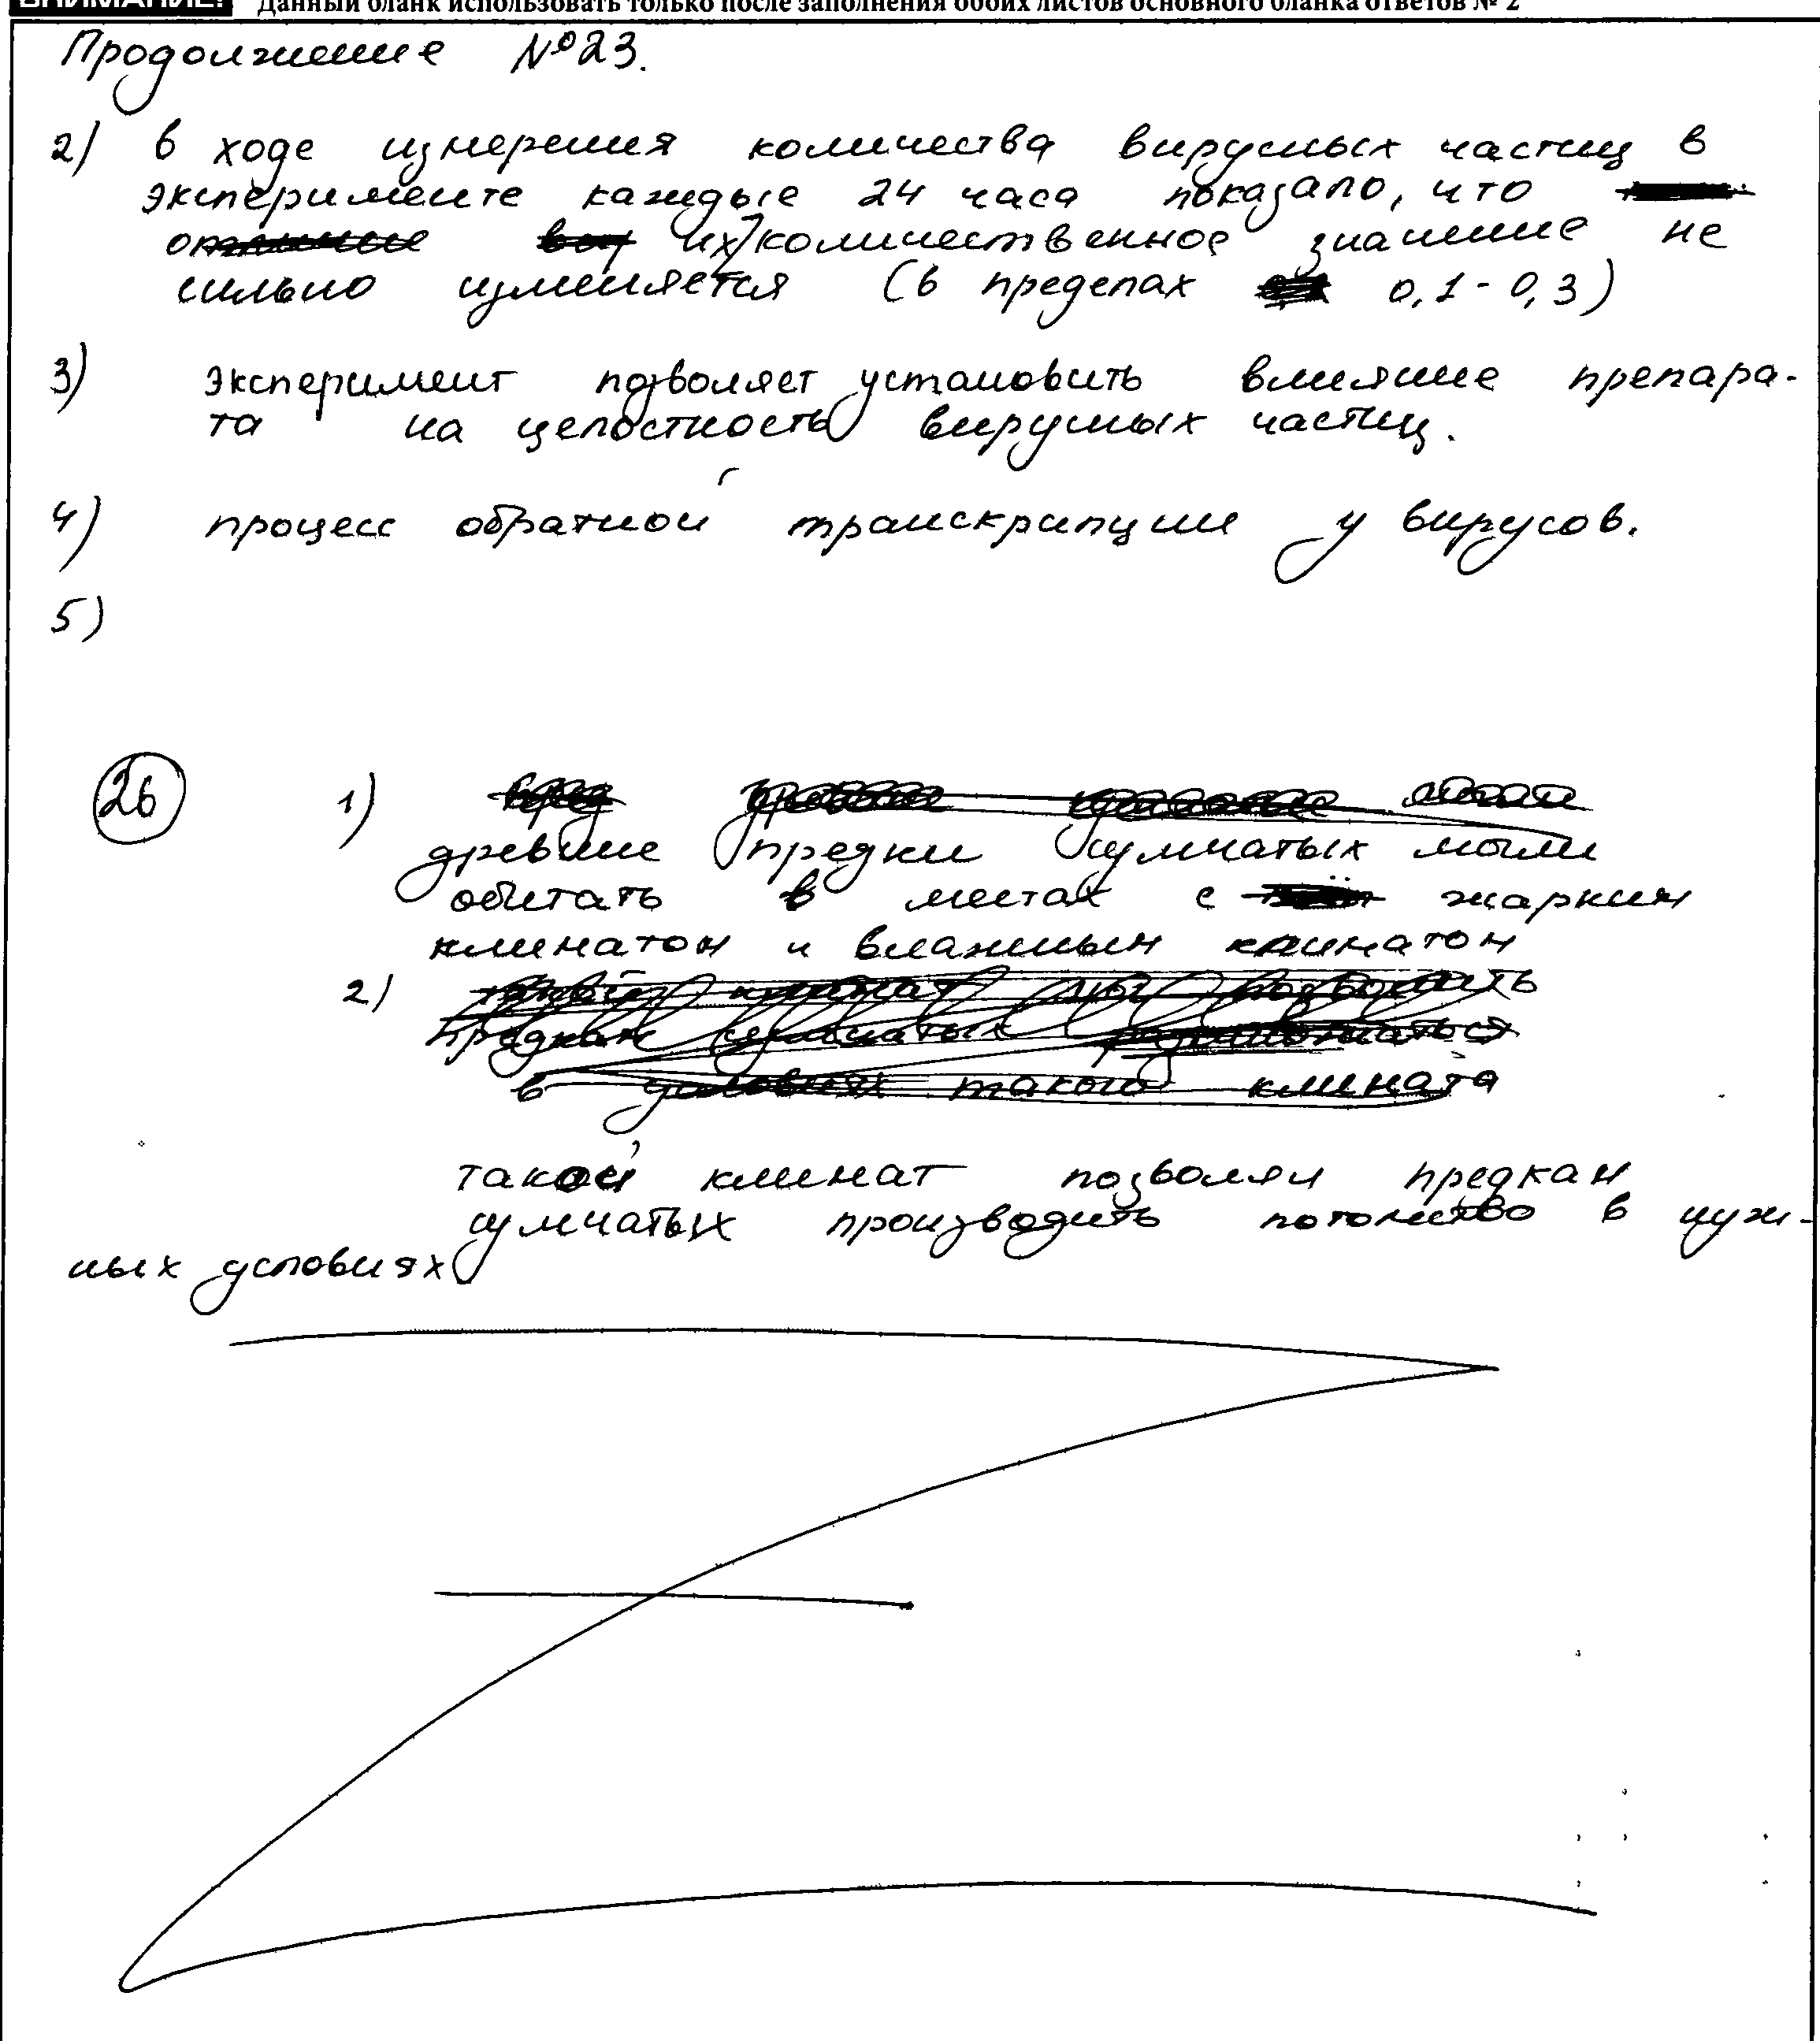 ВНИМАНИЕ! Данный бланк использовать только после заполнения обоих листов основного бланка ответов № 2
Продолжение №23.
2) в ходе измерения количества вирусных частиц в
эксперименте каждые 24 часа показало, что
их количественное значение не
сильно изменяется (в пределах 0,1-0,3)
3) эксперимент позволяет установить влияние препара-
та на целостность вирусных частиц.
4) процесс обратной транскрипции у вирусов.
5)
26 1)
древние предки сумчатых могли
обитать в местах с жарким
климатом и влажным климатом
2)
такой климат позволял предкам
сумчатых производить потомство в нуж-
ных условиях